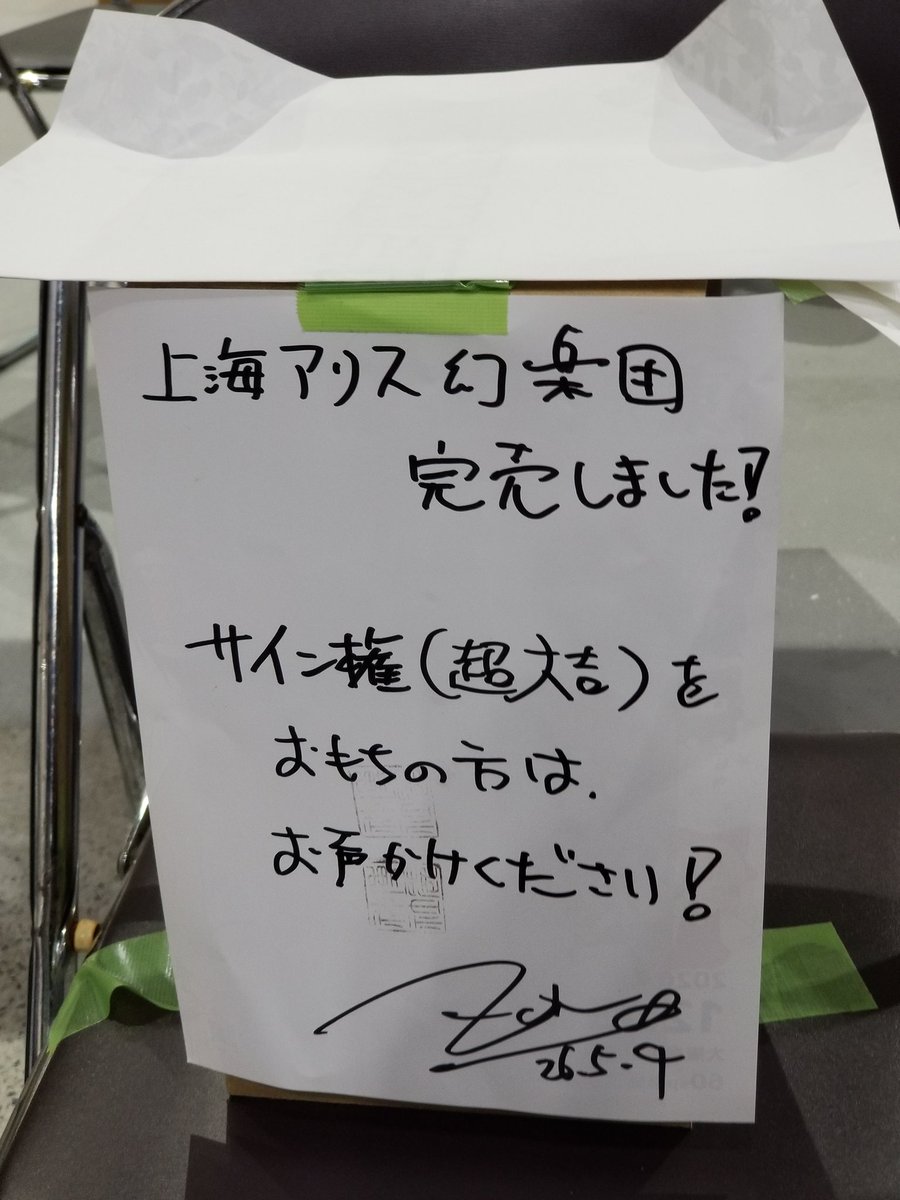 上海アリス幻楽団
完売しました!
サイン権(超大吉)を
おもちの方は.
お声かけください!
26.5.9